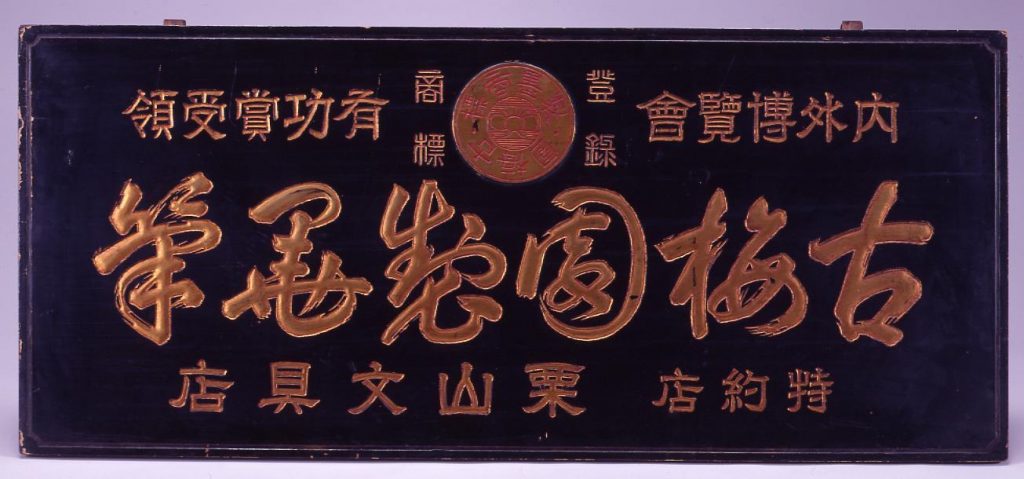 内外博覽會
登錄
商標
有功賞受領
古梅園製墨筆
特約店
栗山文具店